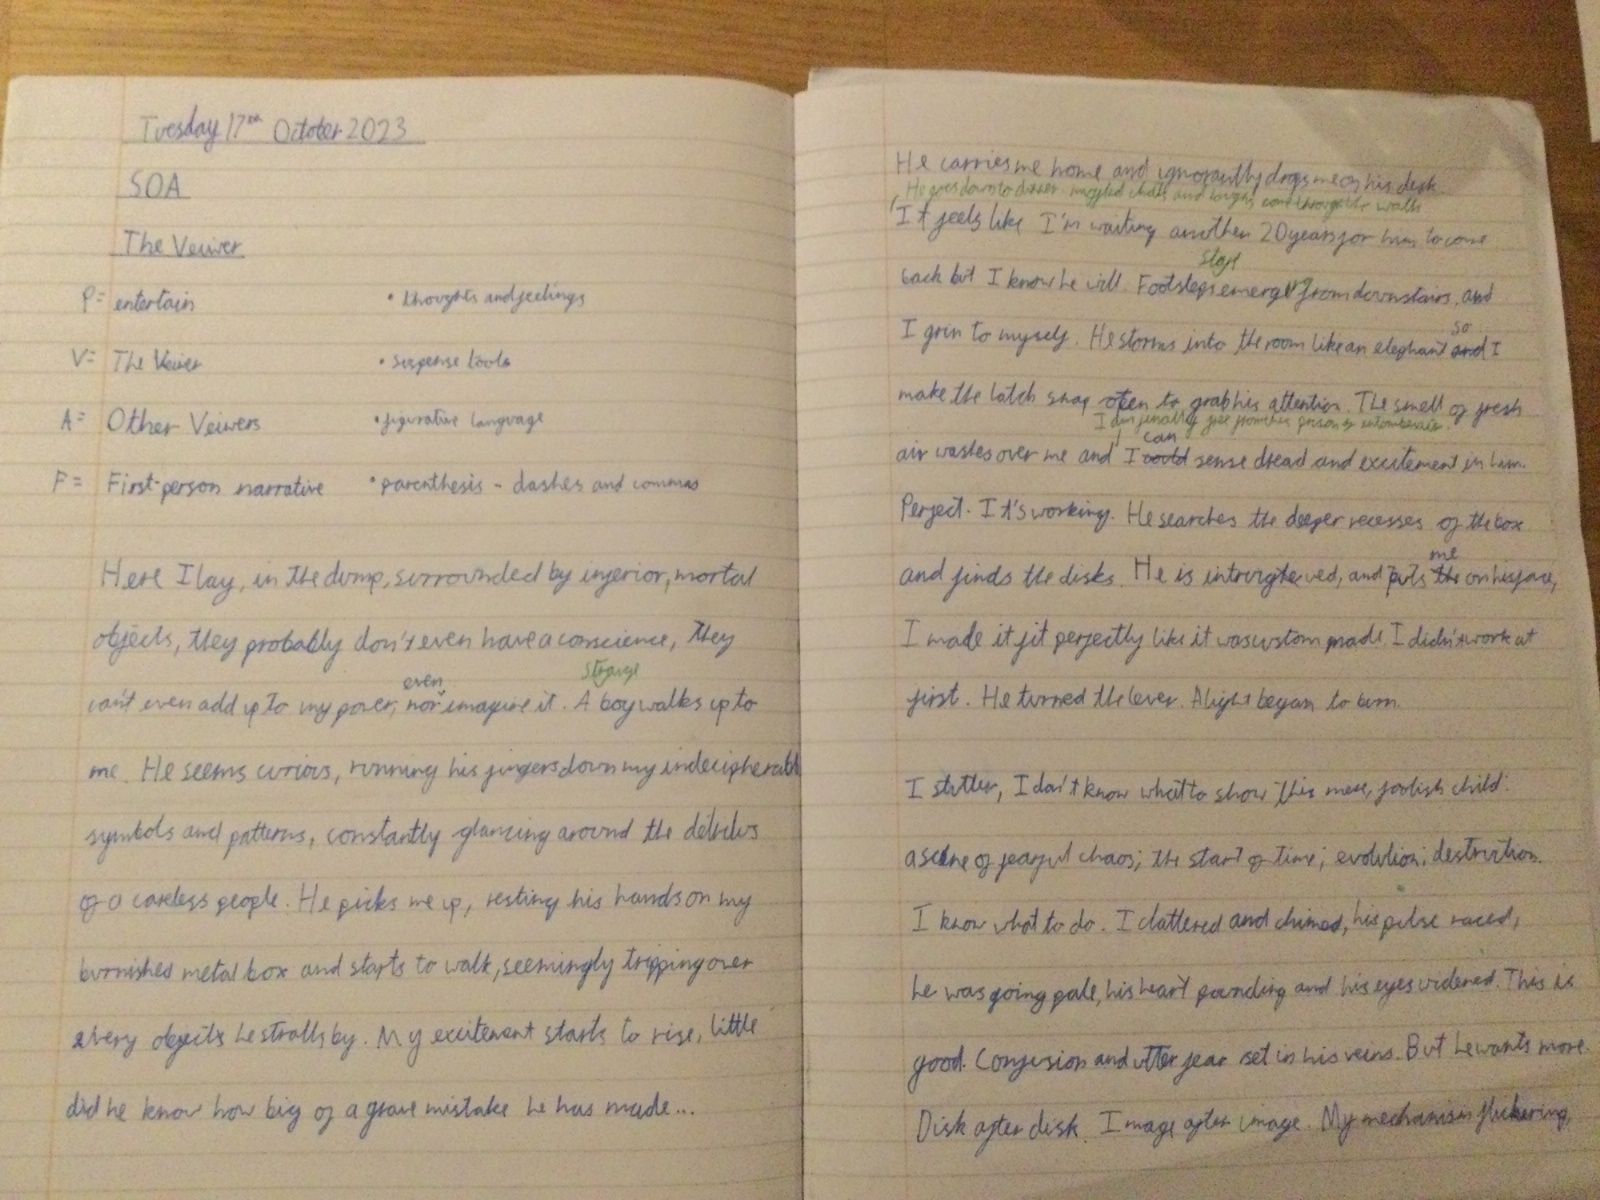 Tuesday 17th October 2023
SOA
The Veiwer
P= entertain • thoughts and feelings
V= The Veiwer • suspense tools
A= Other Veiwers • figurative language
F= First-person narrative • parenthesis - dashes and commas
Here I lay, in the dump, surrounded by inferior, mortal
objects, they probably don't even have a conscience, they
even strange
can't even add up to my power, nor imagine it. A boy walks up to
me. He seems curious, running his fingers down my indecipherable
symbols and patterns, constantly glancing around the debries
of a careless people. He picks me up, resting his hands on my
burnished metal box and starts to walk, seemingly tripping over
every objects he strolls by. My excitement starts to rise, little
did he know how big of a grave mistake he has made...
He carries me home and ignorantly drops me on his desk.
He goes down to dinner. muffled chats and laughs come through the walls
It feels like I'm waiting another 20 years for him to come
start
back but I know he will. Footsteps emerge from downstairs, and
so
I grin to myself. He storms into the room like an elephant and I
make the latch snap open to grab his attention. The smell of fresh
I am finally free from this
can
air washes over me and I could sense dread and excitement in him.
Perfect. It's working. He searches the deeper recesses of the box
me
and finds the disks. He is and puts the on his face,
I made it fit perfectly like it was custom made. I didn't work at
first. He turned the lever. A light began to burn.
I stutter, I don't know what to show this mere, foolish child:
a scene of fearful chaos; the start of time; evolution; destruction.
I know what to do. I clattered and chimed, his pulse raced,
he was going pale, his heart pounding and his eyes widened. This is
good. Confusion and utter fear set in his veins. But he wants more.
Disk after disk. Image after image. My mechanism flickering,